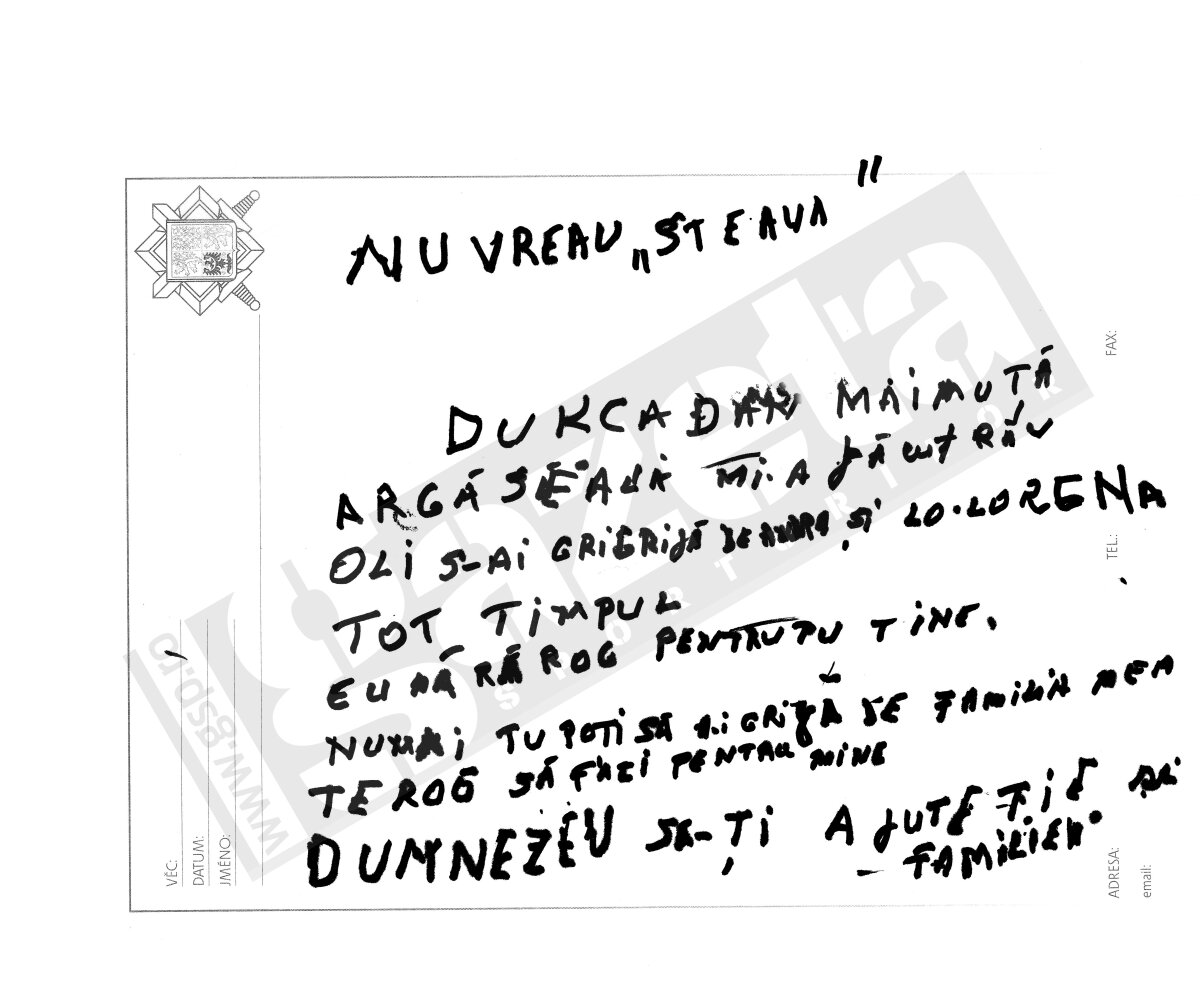 NU VREAU „STEAUA"
DUKCADAM MAIMUȚĂ
ARGĂSEALĂ MI-A FĂCUT RĂU
OLI S-AI GRIGRIJĂ DE ANDRA ȘI LO-LORENA
TOT TIMPUL
EU MĂ RĂROG PENTRUPU TINE.
NUMAI TU POTI SĂ AI GRIJĂ DE FAMILIA MEA
TE ROG SĂ FACI PENTRU MINE
DUMNEZEU SĂ-ȚI AJUTE ȚIE ȘI
FAMILIEI
gazeta
SPORTURILOR
www.gsp.ro
VĚC:
DATUM:
JMÉNO:
FAX:
TEL.:
ADRESA:
email: